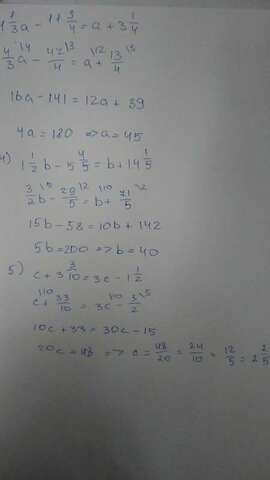 1 1/3a - 11 3/4 = a + 3 1/4
4/3a \4 - 47/4 \3 = a \12 + 13/4 \3
16a - 141 = 12a + 39
4a = 180 => a = 45
4) 1 1/2 b - 5 4/5 = b + 14 1/5
3/2 b \5 - 29/5 \2 = b \10 + 71/5 \2
15b - 58 = 10b + 142
5b = 200 => b = 40
5) c + 3 3/10 = 3c - 1 1/2
c \10 + 33/10 = 3c \10 - 3/2 \5
10c + 33 = 30c - 15
20c = 48 => c = 48/20 = 24/10 = 12/5 = 2 2/5